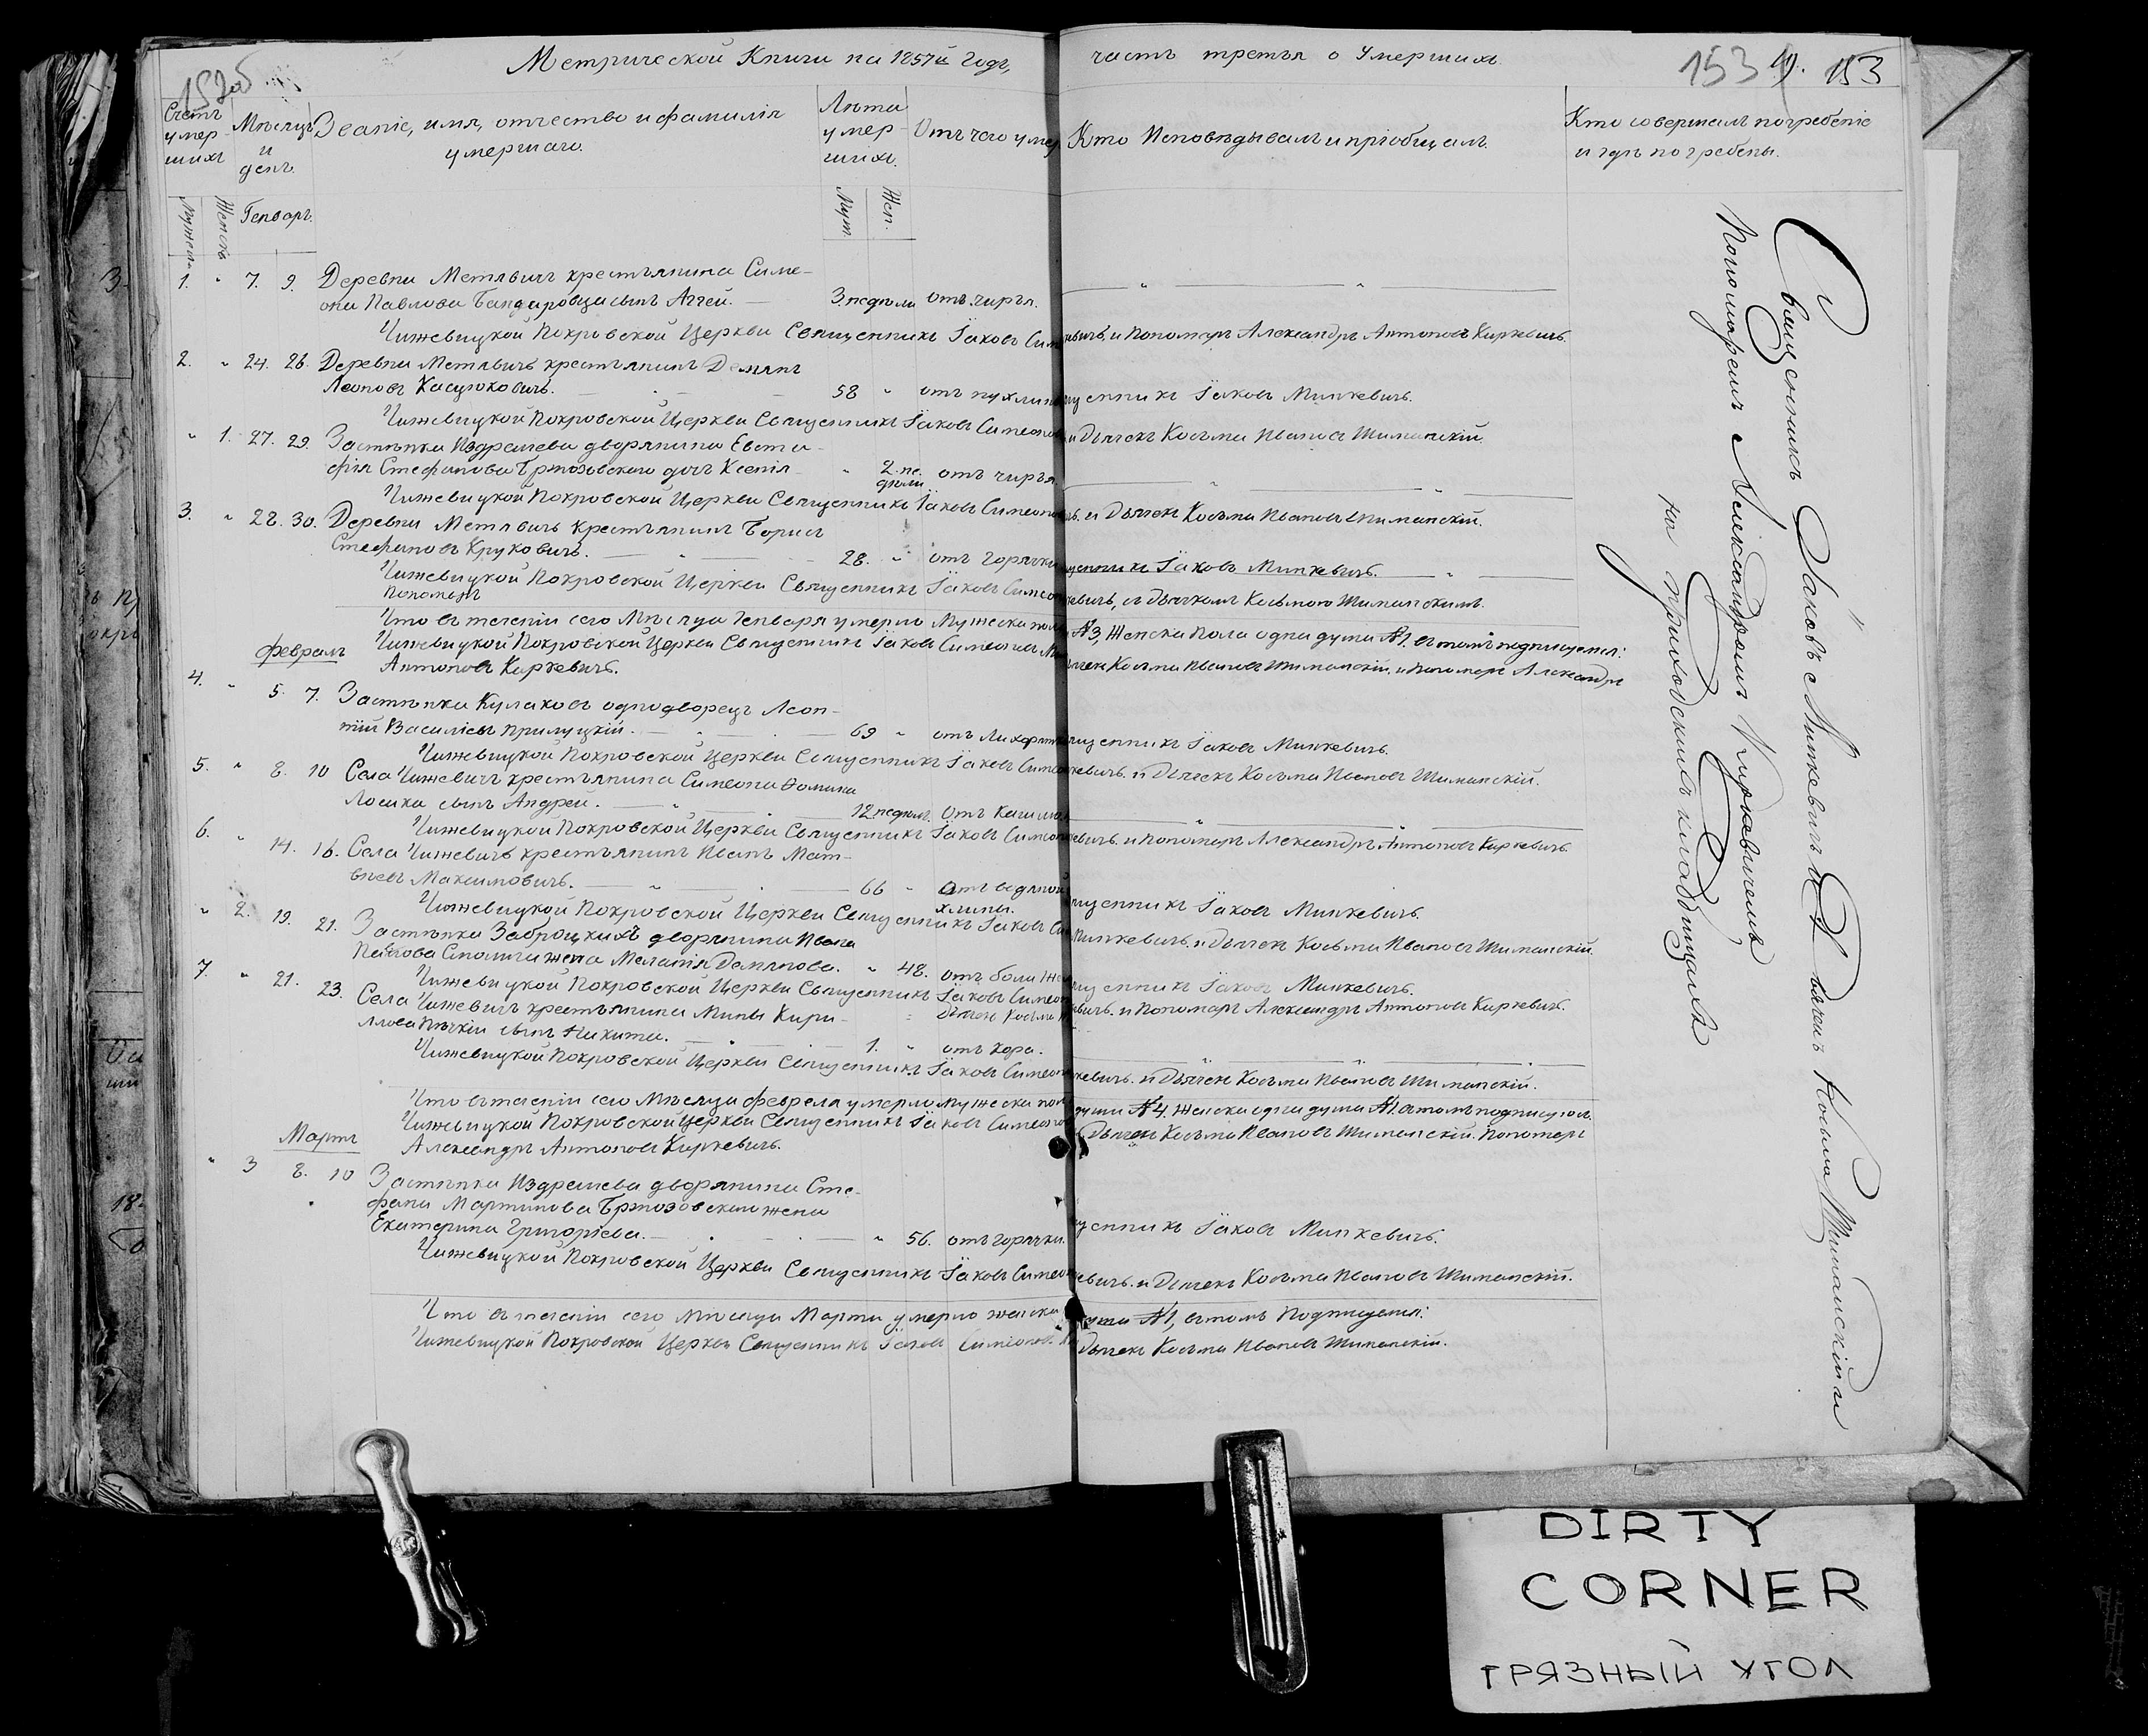 Метрической Книги на 1857й Годъ, часть третья о Умершихъ.
152об
153 153
Счетъ умер-шихъ
Мѣсяцъ и день.
Званіе, имя, отчество и фамилія умершаго.
Лѣта умер-шихъ.
Отъ чего умер
Кто Исповѣдывалъ и пріобщалъ.
Кто совершалъ погребеніе и гдѣ погребены.
Мужеск. Женскъ Генварь. Муж. Жен.
1. " 7. 9. Деревни Метявичъ крестьянина Симе-
она Павлова Бандаровца сынъ Аггей. — 3 недѣли отъ чирья. — " — " —
Чижевицкой Покровской Церкви Священникъ Іаковъ Сим кевичъ, и Пономарь Александръ Антоновъ Киркевичъ.
2. " 24. 26. Деревни Метявичъ крестьянинъ Демянъ
Леоновъ Касцюковичъ. 58 " отъ пухлин щенникъ Іаковъ Минкевичъ.
Чижевицкой Покровской Церкви Священникъ Іаковъ Симеонов и Дьячекъ Косьма Ивановъ Шиманскій.
" 1. 27. 29. Застѣнка Издрашева дворянина Евста-
фія Стефанова Бржозовскаго дочь Ксенія " 2 не-
дѣли отъ чирья — " — " —
Чижевицкой Покровской Церкви Священникъ Іаковъ Симеонов ъ. и Дьячекъ Косьма Ивановъ Шиманскій.
3. " 28. 30. Деревни Метявичъ крестьянинъ Борисъ
Стефановъ Круковичъ. — " — 28. " отъ горячки щенникъ Іаковъ Минкевичъ. — " —
Чижевицкой Покровской Церкви Священникъ Іаковъ Симеон кевичъ, съ Дьячкомъ Косьмою Шиманскимъ.
Что въ теченіи сего Мѣсяца Генваря умерло Мужеска пола №3, Женска Пола одна душа №1. въ томъ подписуемся:
Чижевицкой Покровской Церкви Священникъ Іаковъ Симеоновъ М ячекъ Косьма Ивановъ Шиманскій, и Пономарь Александръ
Антоновъ Киркевичъ.
Февраль
4. " 5. 7. Застѣнка Кулаковъ однодворецъ Леон-
тій Василіевъ Прилуцкій. — " — 69 " отъ Лихорадк щенникъ Іаковъ Минкевичъ.
Чижевицкой Покровской Церкви Священникъ Іаковъ Симео кевичъ. и Дьячекъ Косьма Ивановъ Шиманскій.
5. " 8. 10 Села Чижевичъ крестьянина Симеона Фомина
Лосика сынъ Андрей. — " — 12 недѣль. Отъ Кашля — " — " —
Чижевицкой Покровской Церкви Священникъ Іаковъ Симеон кевичъ. и Пономарь Александръ Антоновъ Киркевичъ.
6. " 14. 16. Села Чижевичъ крестьянинъ Иванъ Мат-
вѣевъ Максимовичъ. — " — 66 " Отъ водяной
хлины. щенникъ Іаковъ Минкевичъ.
Чижевицкой Покровской Церкви Священникъ Іаковъ Си Минкевичъ. и Дьячекъ Косьма Ивановъ Шиманскій.
" 2. 19. 21. Застѣнка Заброцкихъ дворянина Ивана
жена Меланія Демянова. " 48. отъ боли щенникъ Іаковъ Минкевичъ.
Чижевицкой Покровской Церкви Священникъ Іаковъ Симеон
7. " 21. 23. Села Чижевичъ крестьянина Мины Кири-
лова сынъ Никита. 1. " отъ Кора. — " — " —
евичъ. и Пономарь Александръ Антоновъ Киркевичъ.
Чижевицкой Покровской Церкви Священникъ Іаковъ Симеон кевичъ. и Дьячекъ Косьма Ивановъ Шиманскій.
Что въ теченіи сего Мѣсяца февраля умерло мужеска пол души №4. Женска одна душа №1. въ томъ подписуюсь.
Чижевицкой Покровской Церкви Священникъ Іаковъ Симеонов Дьячекъ Косьма Ивановъ Шиманскій. Пономарь
Александръ Антоновъ Киркевичъ.
Мартъ
" 3 8. 10 Застѣнка Издрашева дворянина Сте-
фана Мартинова Бржозовскаго жена
Екатерина Григоріева. — " 56. отъ горячки. щенникъ Іаковъ Минкевичъ.
Чижевицкой Покровской Церкви Священникъ Іаковъ Симеон кевичъ. и Дьячекъ Косьма Ивановъ Шиманскій.
Что въ теченіи сего Мѣсяца Марта умерло женска душа №1, въ томъ Подписуемся:
Чижевицкой Покровской Церкви Священникъ Іаковъ Симеоновъ Дьячекъ Косьма Ивановъ Шиманскій.
Священникъ Іаковъ Минкевичъ съ Дьячкомъ Косьмою Шиманскимъ и
Пономаремъ Александромъ Киркевичемъ
на приходскихъ кладбищахъ
DIRTY
CORNER
ГРЯЗНЫЙ УГОЛ